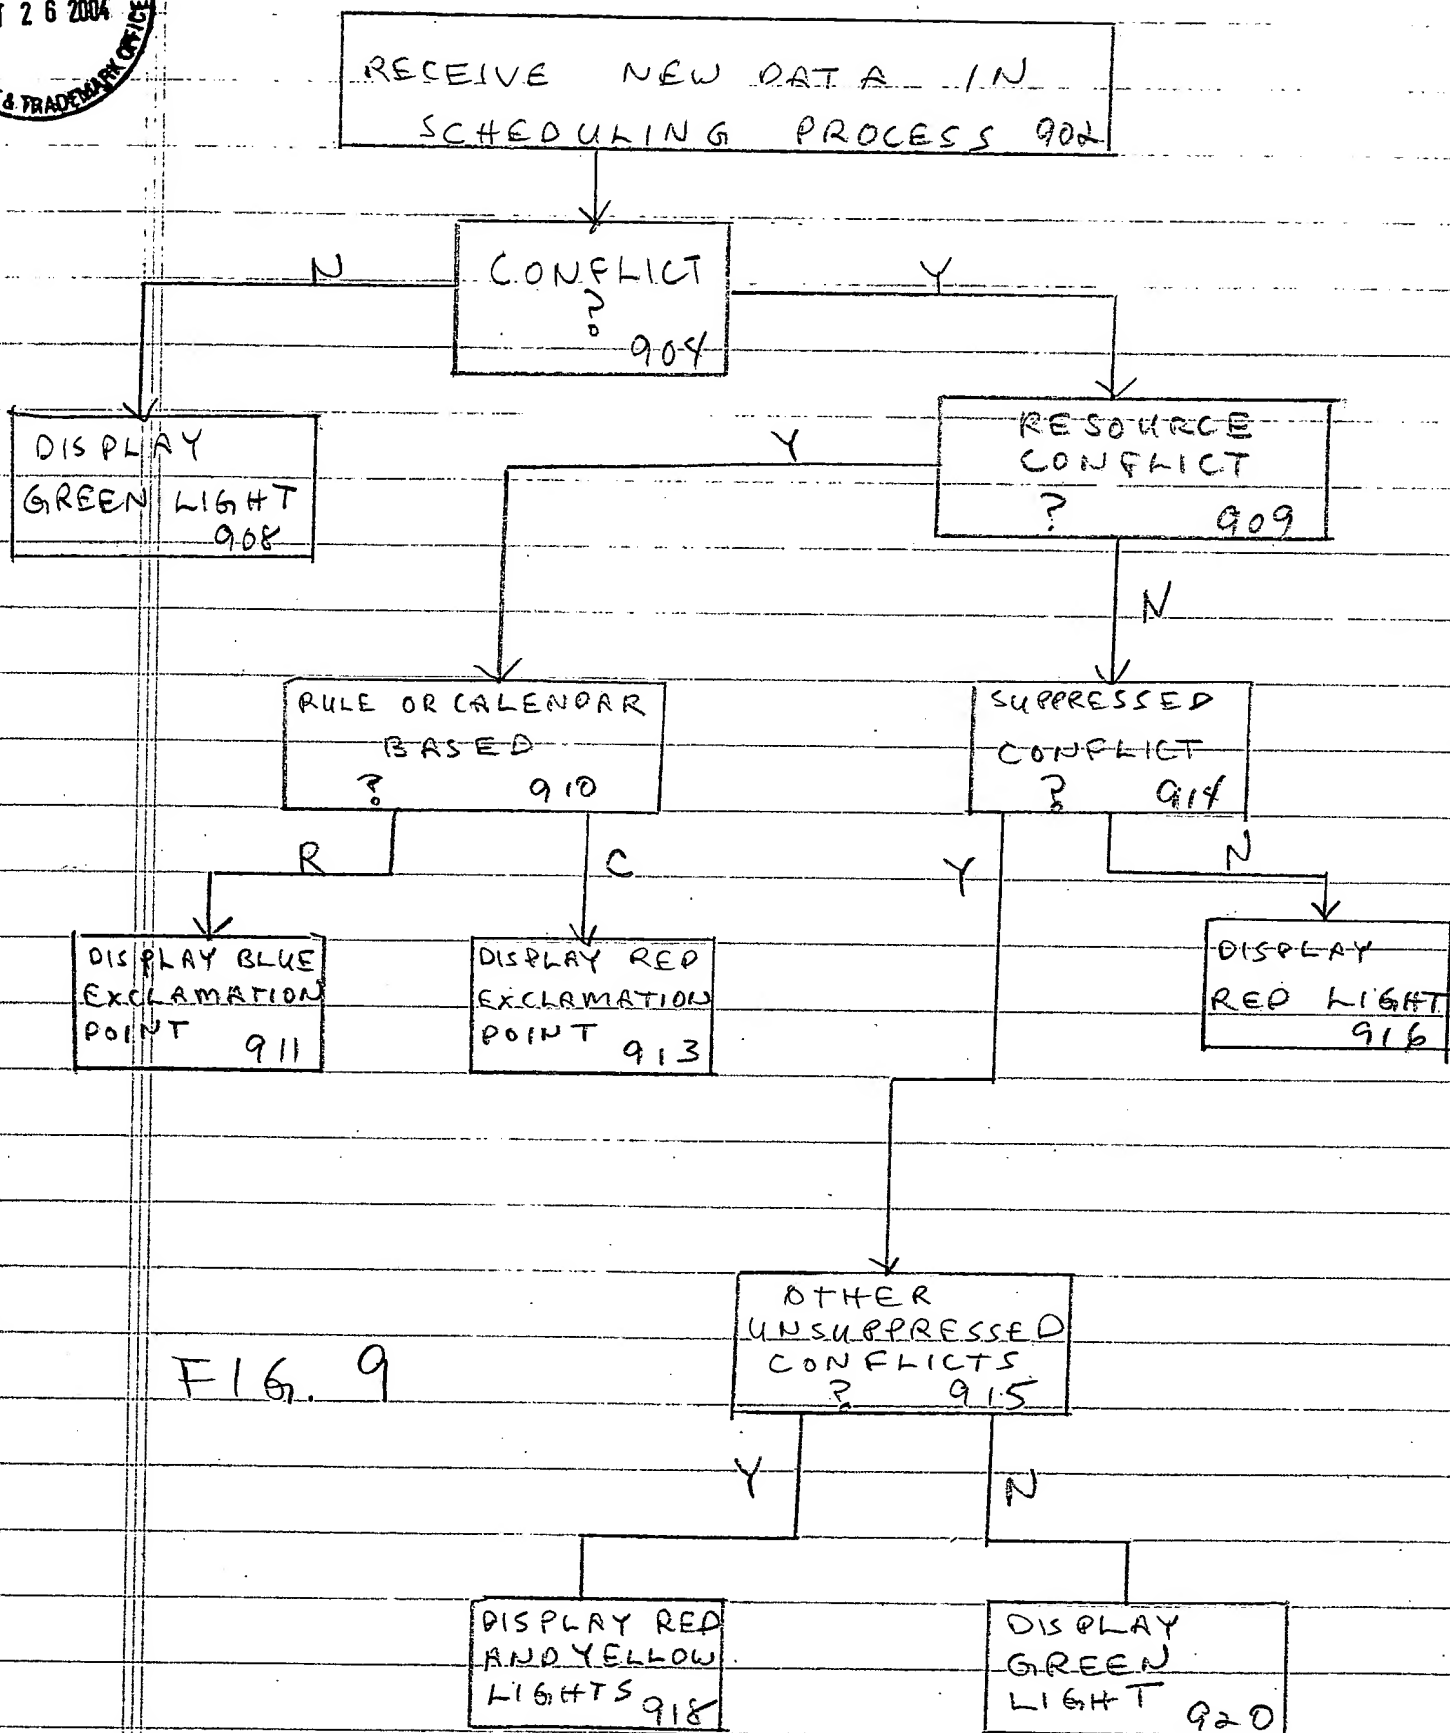 T 26 2004
& TRADEMARK OFFICE
RECEIVE NEW DATA IN
SCHEDULING PROCESS 902
N
CONFLICT
?
904
Y
DISPLAY
GREEN LIGHT
908
Y
RESOURCE
CONFLICT
? 909
N
RULE OR CALENDAR
BASED
? 910
SUPPRESSED
CONFLICT
? 914
R
C
Y
N
DISPLAY BLUE
EXCLAMATION
POINT 911
DISPLAY RED
EXCLAMATION
POINT 913
DISPLAY
RED LIGHT
916
OTHER
UNSUPPRESSED
CONFLICTS
? 915
FIG. 9
Y
N
DISPLAY RED
AND YELLOW
LIGHTS 918
DISPLAY
GREEN
LIGHT 920